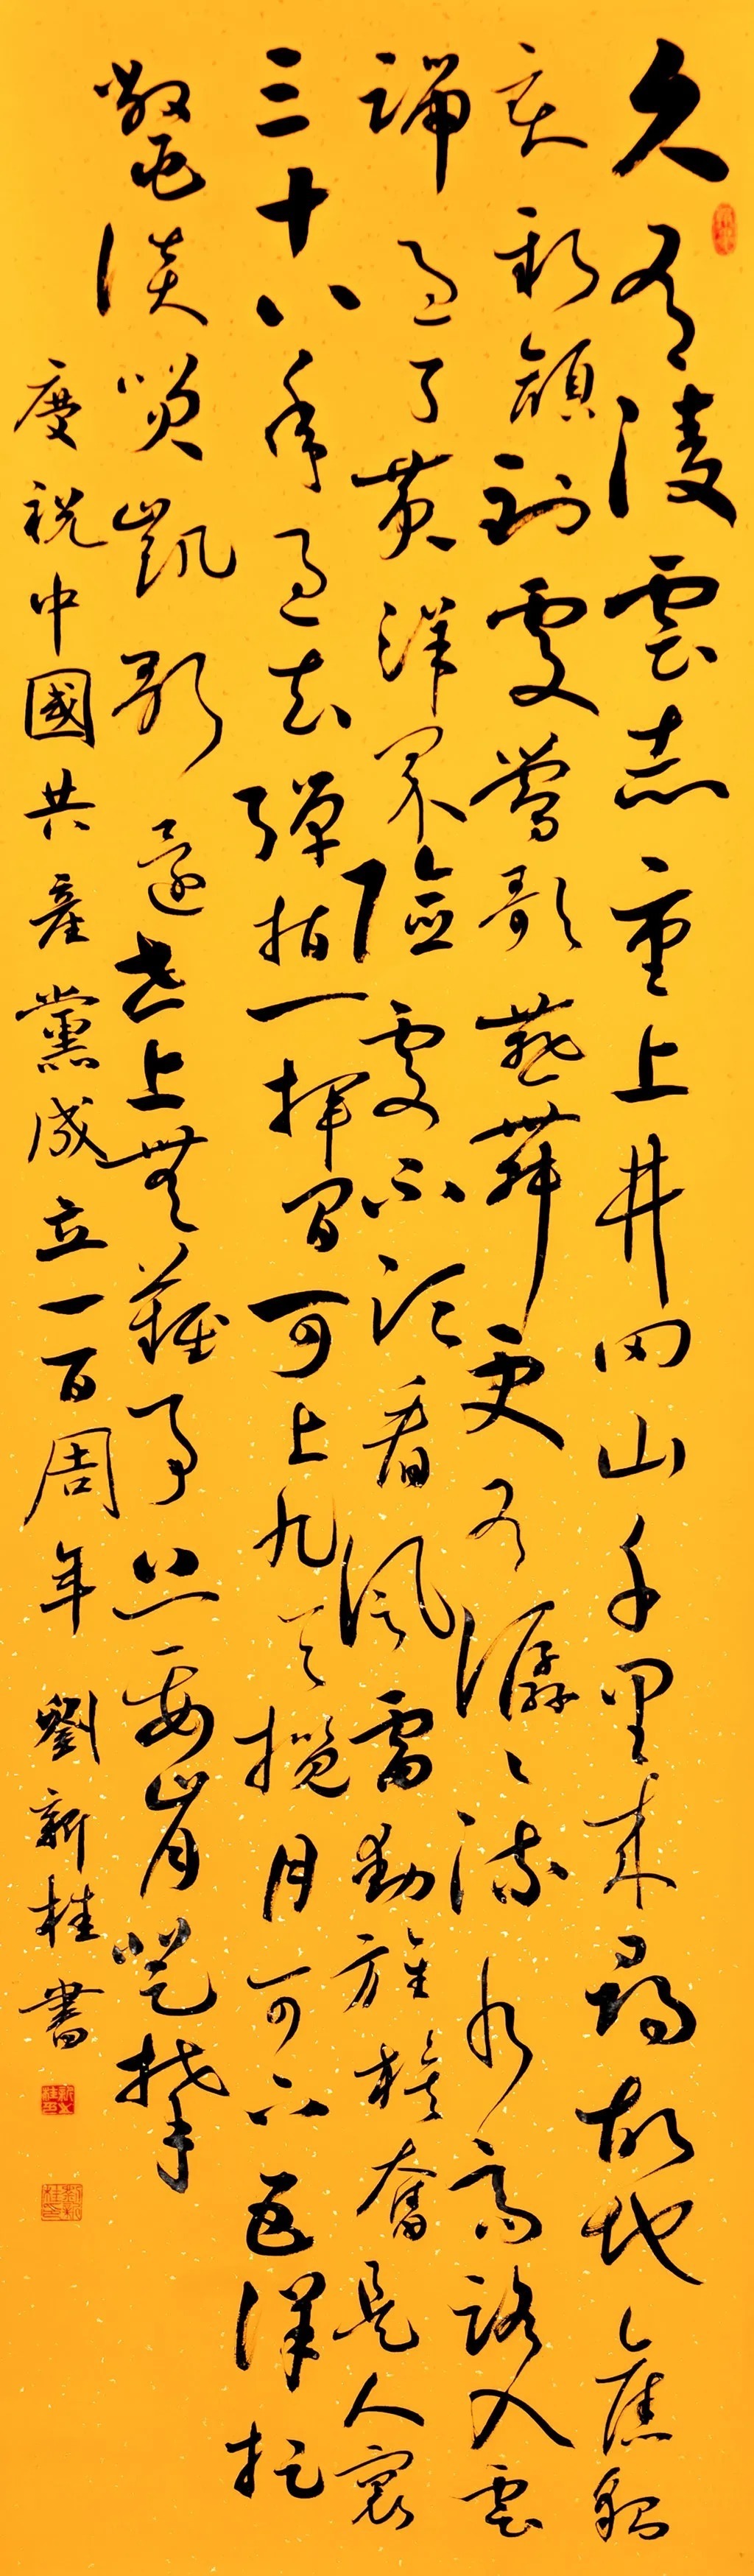 久有凌雲志重上井岡山千里来尋故地舊貌
变新顔到處鶯歌燕舞更有潺々流水高路入雲
端過了黄洋界險處不須看風雷動旌旗奮是人寰
三十八年過去彈指一揮間可上九天攬月可下五洋捉
鱉談笑凱歌還世上無難事只要肯登攀
慶祝中國共產黨成立一百周年 劉新桂書